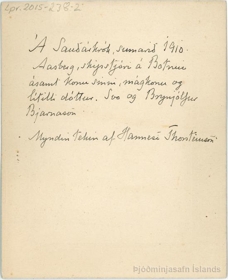 Lpr. 2015-278-2
Á Sauðárkrók, sumarið 1910.
Aasberg, skipstjóri á Botniu
ásamt konu sinni, mágkonu og
lítilli dóttur. Svo og Brynjólfur
Bjarnason
Myndin tekin af Hannesi Thorsteinsson
Þjóðminjasafn Íslands